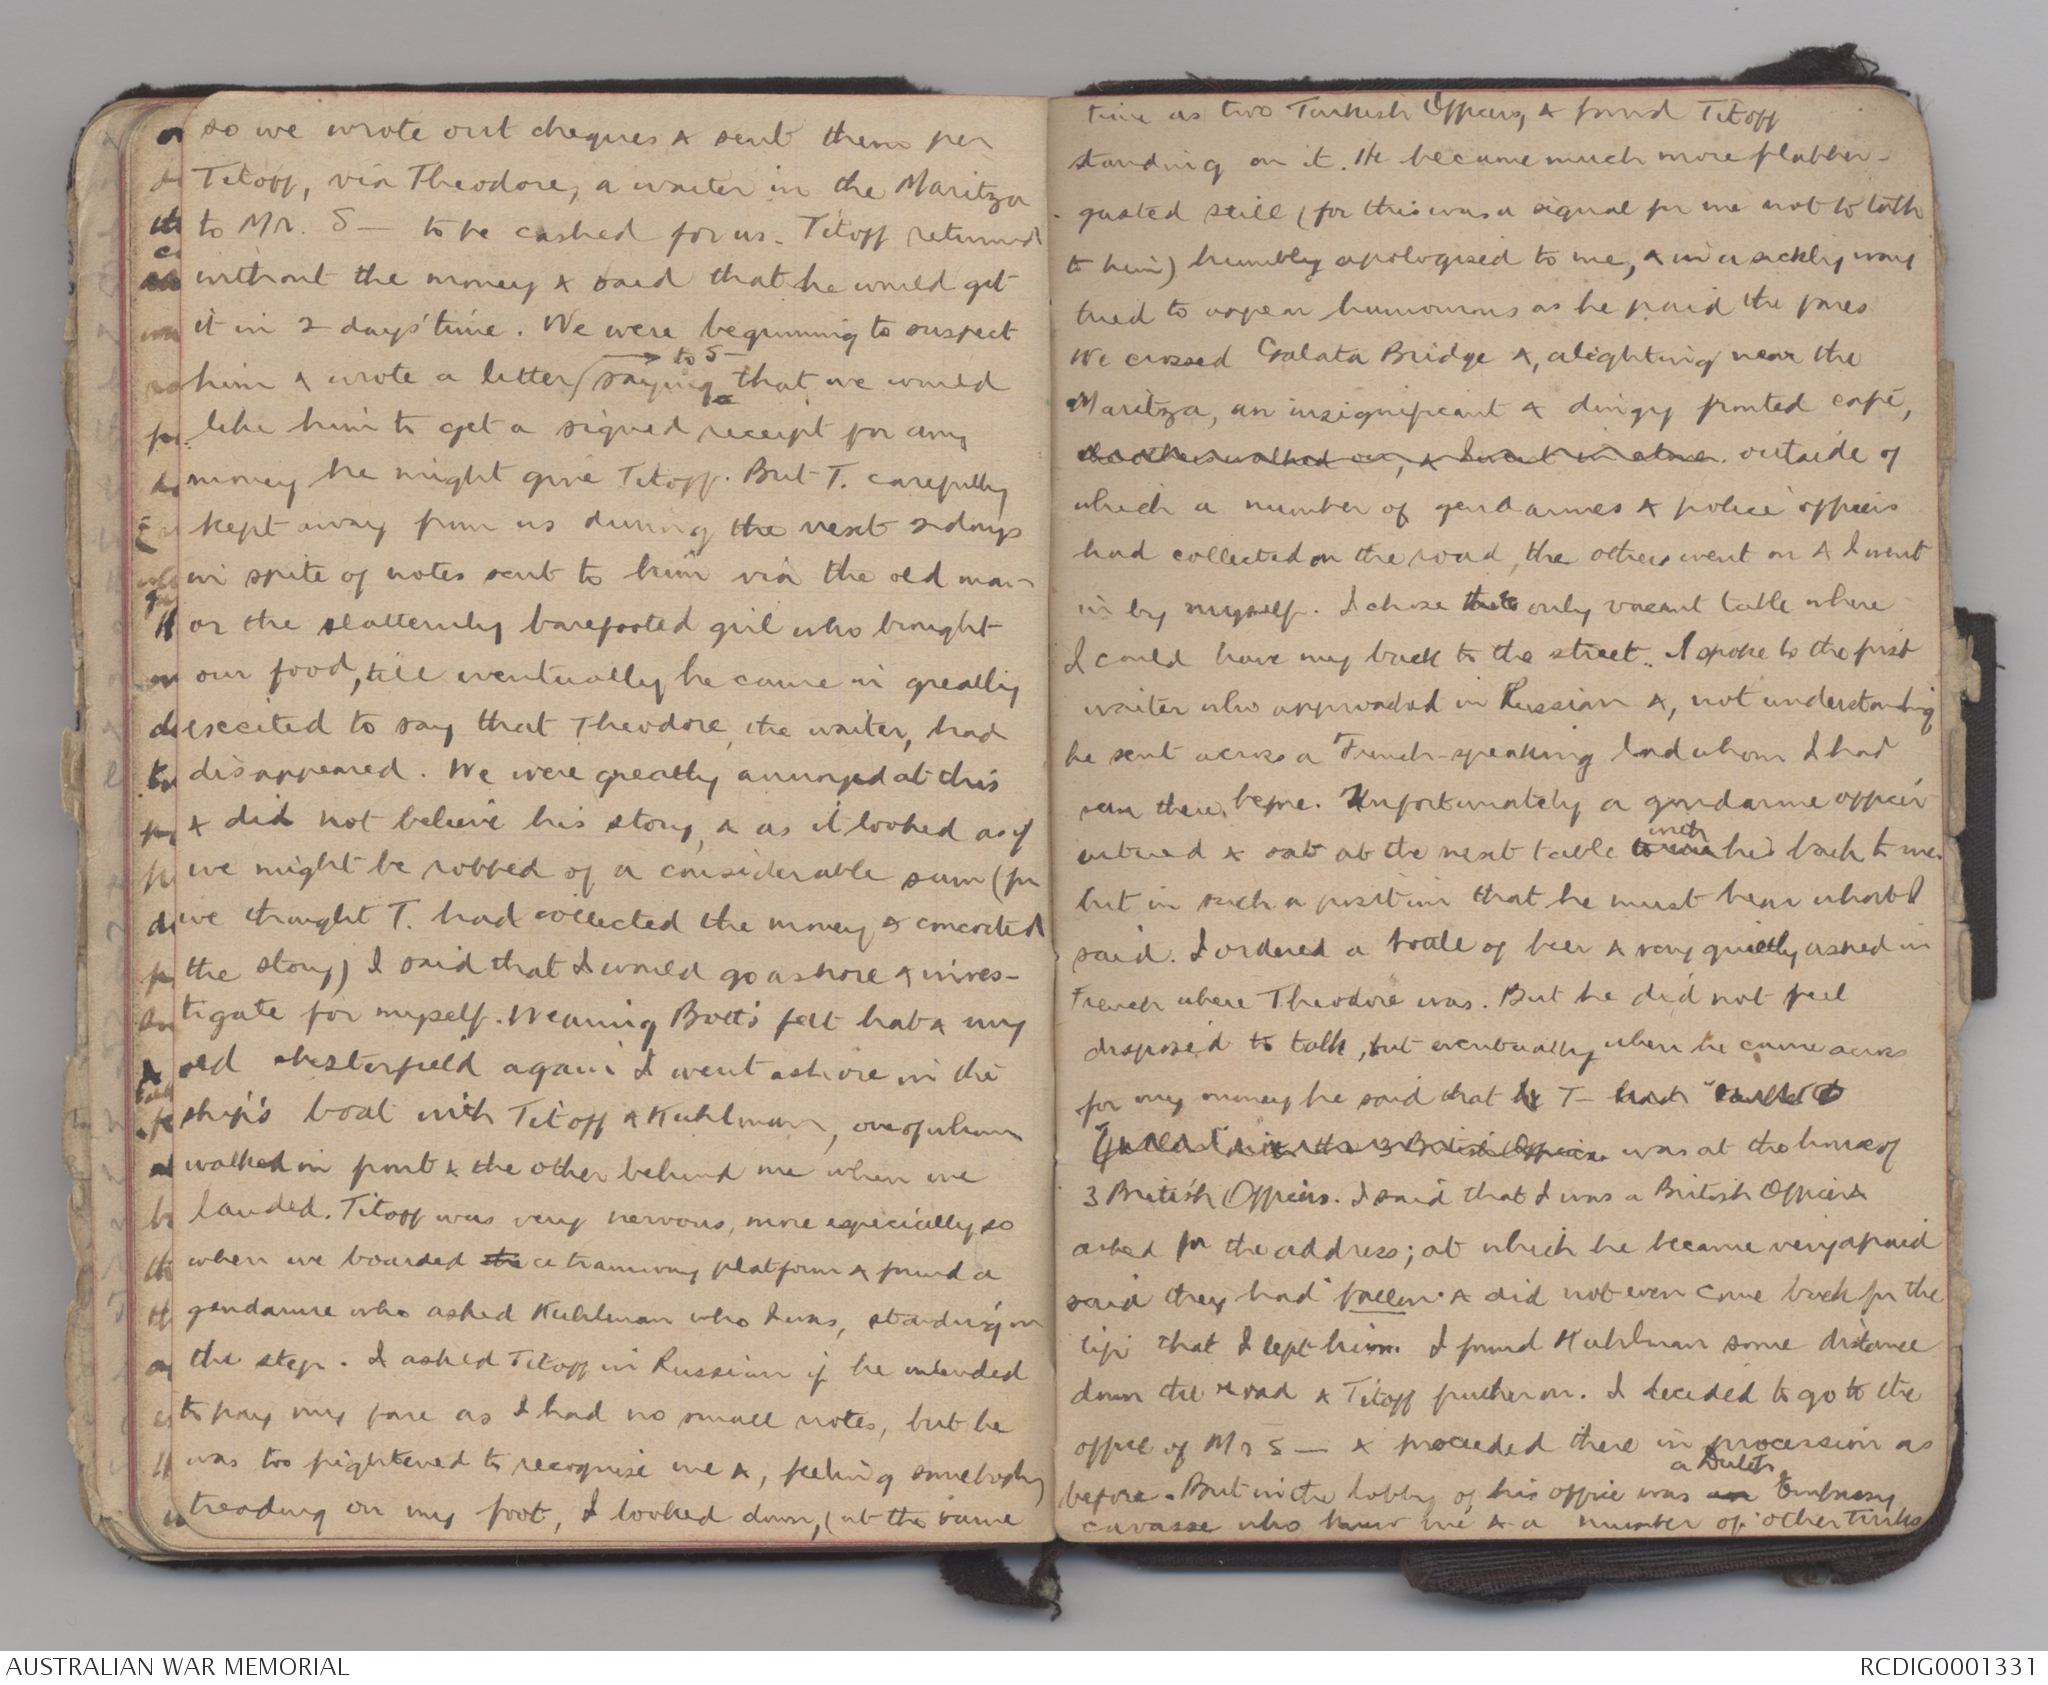 so we wrote out cheques & sent them per
Titoff, via Theodore, a waiter in the Maritza
to Mr. S — to be cashed for us. Titoff returned
without the money & said that he would get
it in 2 days' time. We were beginning to suspect
to S —
him & wrote a letter (saying that we would
like him to get a signed receipt for any
money he might give Titoff. But T. carefully
kept away from us during the next 2 days
in spite of notes sent to him via the old man
or the slatternly barefooted girl who brought
our food, till eventually he came in greatly
excited to say that Theodore, the waiter, had
disappeared. We were greatly annoyed at this
& did not believe his story, & as it looked as if
we might be robbed of a considerable sum (for
we thought T. had collected the money & concocted
the story) I said that I would go ashore & inves-
tigate for myself. Wearing Bott's felt hat & my
old chesterfield again I went ashore in the
ship's boat with Titoff & Kuhlman, one of whom
walked in front & the other behind me when we
landed. Titoff was very nervous, more especially so
when we boarded the a tramway platform & found a
gendarme who asked Kuhlman who I was, standing on
the step. I asked Titoff in Russian if he intended
to pay my fare as I had no small notes, but he
was too frightened to recognise me &, feeling somebody
treading on my foot, I looked down, (at the same
time as two Turkish Officers, & found Titoff
standing on it. He became much more flabber-
gasted still (for this was a signal for me not to talk
to him) humbly apologised to me, & in a sickly way
tried to appear humourous as he paid the fares
We crossed Galata Bridge &, alighting near the
Maritza, an insignificant & dingy fronted café,
the others walked on, & I went in alone. outside of
which a number of gendarmes & police officers
had collected on the road, the others went on & I went
in by myself. I chose the only vacant table where
I could have my back to the street. I spoke to the first
waiter who approached in Russian &, not understanding
he sent across a French-speaking lad whom I had
seen there before. Unfortunately a gendarme officer
with
entered & sat at the next table his back to me.
but in such a position that he must hear what I
said. I ordered a bottle of beer & very quietly asked in
French where Theodore was. But he did not feel
disposed to talk, but eventually when he came across
for my money he said that T — had
3 British Officers. was at the house of
3 British Officers. I said that I was a British Officer &
asked for the address; at which he became very afraid
said they had "fallen" & did not even come back for the
tip that I left him. I found Kuhlman some distance
down the road & Titoff further on. I decided to go to the
office of Mr S — & proceeded there in procession as
a Dutch
before. But in the lobby of his office was an Embassy
cavasse who knew me & a number of other Turks
AUSTRALIAN WAR MEMORIAL
RCDIG0001331